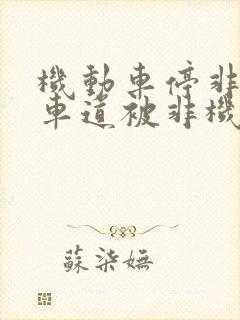 機動車停非
車道被非機
蘇柒嫵